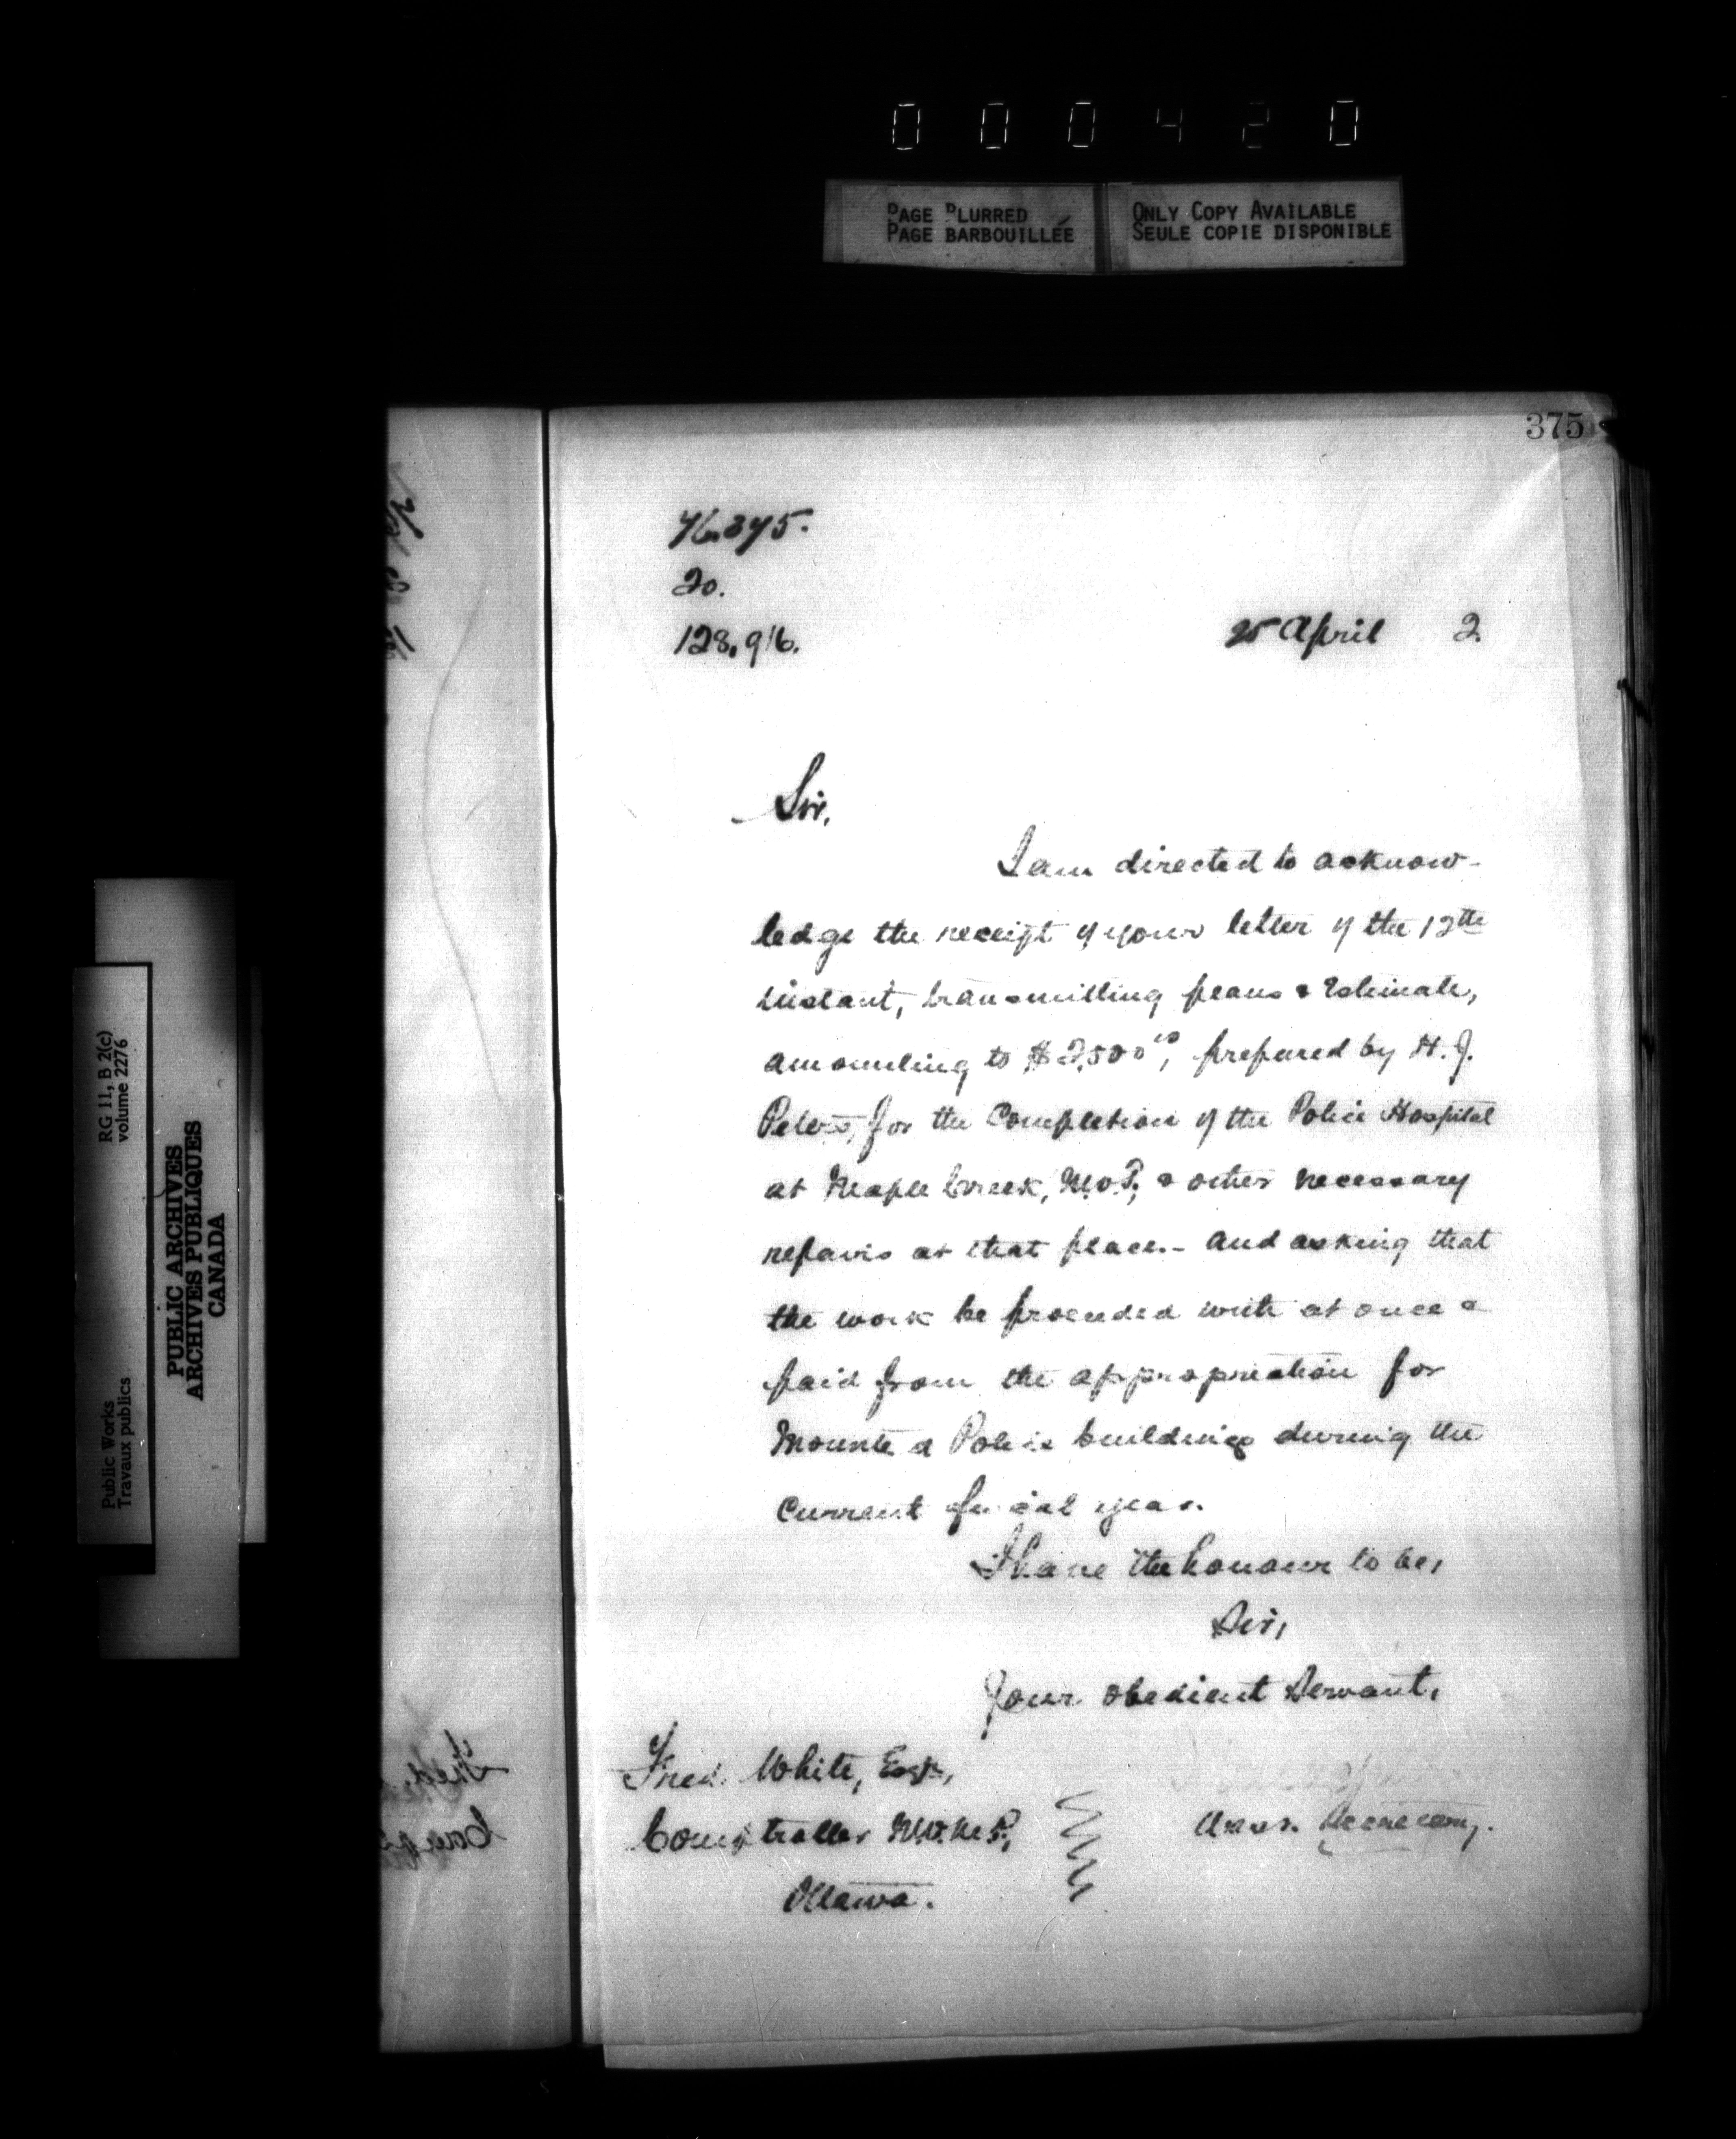 000420
PAGE BLURRED
PAGE BARBOUILLÉE
ONLY COPY AVAILABLE
SEULE COPIE DISPONIBLE
375
76.375.
20.
128,916.
25 April 2.
Sir,
I am directed to acknow-
ledge the receipt of your letter of the 12th
instant, transmitting plans & Estimate,
amounting to $2,500 prepared by H. J.
Peters, for the Completion of the Police Hospital
at Maple Creek, N.W.T, & other necessary
repairs at that place.- and asking that
the work be proceeded with at once &
paid from the appropriation for
Mounted Police buildings during the
Current year.
I have the honour to be,
Sir,
Your obedient Servant,
Fred. White, Esq.,
Comptroller N.W.M.P.,
Ottawa.
Secretary.
RG 11, B 2(c)
volume 2276
PUBLIC ARCHIVES
ARCHIVES PUBLIQUES
CANADA
Public Works
Travaux publics